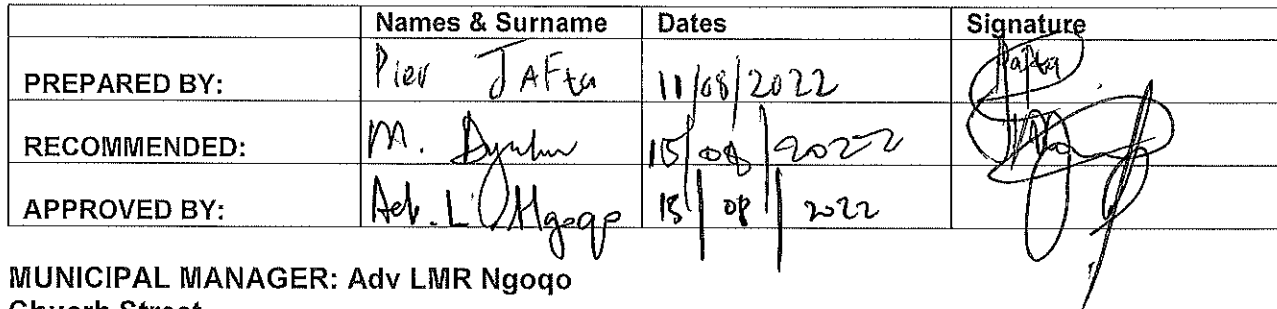 Names & Surname Dates Signature
PREPARED BY: JAFta 11/08/2022 Jafta
RECOMMENDED: M. 15/08/2022
APPROVED BY: Adv. L Ngoqo 15/08/2022
MUNICIPAL MANAGER: Adv LMR Ngoqo